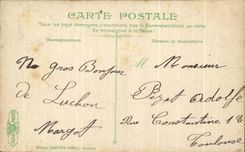 CARTE POSTALE
Tous les pays étrangers n'acceptent pas la Correspondance au recto
Se renseigner à la Poste
Correspondance
Adresse du destinataire
Un gros Bonjour
de Luchon
Margot
Monsieur
Pezet Adolfe
Rue Constantine 18
Toulouse